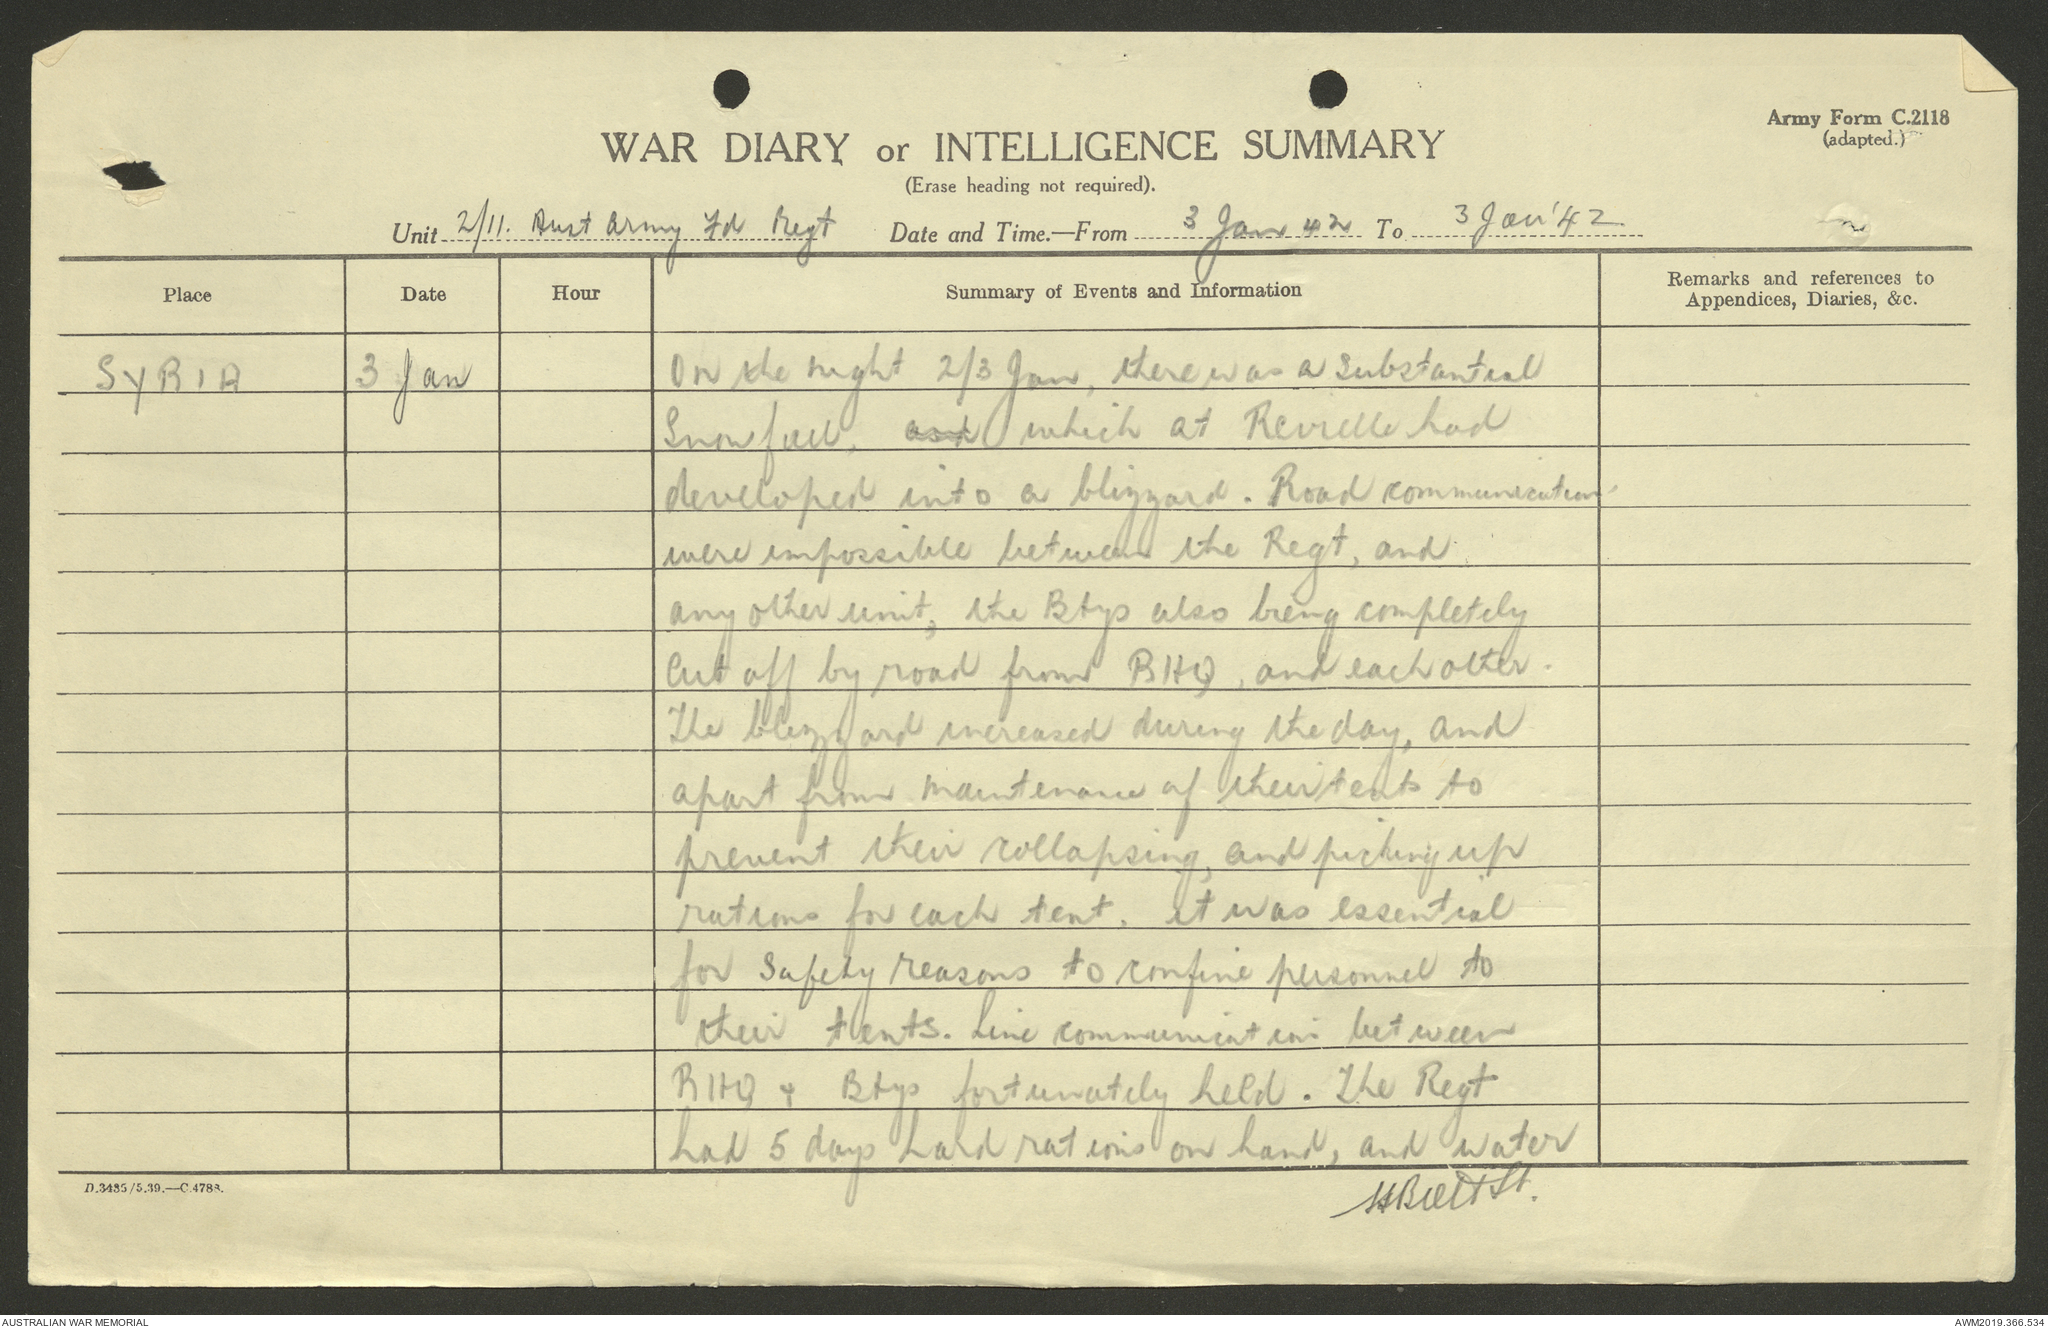 Army Form C.2118
(adapted.)
WAR DIARY or INTELLIGENCE SUMMARY
(Erase heading not required).
Unit 2/11. Aust Army Fd Regt Date and Time.—From 3 Jan 42 To 3 Jan '42
Place Date Hour Summary of Events and Information Remarks and references to
Appendices, Diaries, &c.
SYRIA 3 Jan On the night 2/3 Jan, there was a Substantial
Snowfall, and which at Reveille had
developed into a blizzard. Road communications
were impossible between the Regt, and
any other unit, the Btys also being completely
Cut off by road from RHQ, and each other.
The blizzard increased during the day, and
apart from maintenance of their tents to
prevent their collapsing, and picking up
rations for each tent. it was essential
for Safety reasons to confine personnel to
their tents. Line communications between
RHQ & Btys fortunately held. The Regt
had 5 days hard rations on hand, and water
Lt.
D.3485/5.39.—C.4788.
AUSTRALIAN WAR MEMORIAL
AWM2019.366.534